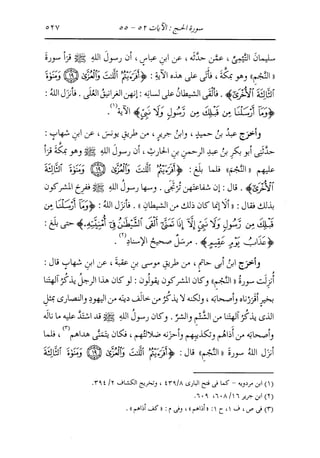 سورة الحج: الآيات ٥٢ - ٥٥ ٥٢٧
سليمان التيمي، عمن حدثه، عن ابن عباس، أن رسول الله ﷺ قرأ سورة
«النجم» وهو بمكة، فأتى على هذه الآية: ﴿أَفَرَءَيْتُمُ ٱللَّٰتَ وَٱلْعُزَّىٰ ۝١٩ وَمَنَوٰةَ
ٱلثَّالِثَةَ ٱلْأُخْرَىٰٓ﴾. فألقى الشيطان على لسانه: إنهن الغرانيق العلى. فأنزل الله:
﴿وَمَآ أَرْسَلْنَا مِن قَبْلِكَ مِن رَّسُولٍ وَلَا نَبِيٍّ﴾ الآية(١).
وأخرج عبد بن حميد، وابن جرير، من طريق يونس، عن ابن شهاب:
حدثني أبو بكر بن عبد الرحمن بن الحارث، أن رسول الله ﷺ وهو بمكة قرأ
عليهم «النجم» فلما بلغ: ﴿أَفَرَءَيْتُمُ ٱللَّٰتَ وَٱلْعُزَّىٰ ۝١٩ وَمَنَوٰةَ ٱلثَّالِثَةَ
ٱلْأُخْرَىٰٓ﴾. قال: إن شفاعتهن ترتجى. وسها رسول الله ﷺ ففرح المشركون
بذلك فقال: «ألا إنما كان ذلك من الشيطان». فأنزل الله: ﴿وَمَآ أَرْسَلْنَا مِن
قَبْلِكَ مِن رَّسُولٍ وَلَا نَبِيٍّ إِلَّآ إِذَا تَمَنَّىٰٓ أَلْقَى ٱلشَّيْطَٰنُ فِىٓ أُمْنِيَّتِهِۦ﴾. حتى بلغ:
﴿عَذَابُ يَوْمٍ عَقِيمٍ﴾. مرسل صحيح الإسناد(٢).
وأخرج ابن أبي حاتم، من طريق موسى بن عقبة، عن ابن شهاب قال:
أنزلت سورة «النجم» وكان المشركون يقولون: لو كان هذا الرجل يذكر آلهتنا
بخير أقررناه وأصحابه، ولكنه لا يذكر من خالف دينه من اليهود والنصارى بمثل
الذي يذكر آلهتنا من الشتم والشر. وكان رسول الله ﷺ قد اشتد عليه ما ناله
وأصحابه من أذاهم وتكذيبهم وأحزنه ضلالتهم، فكان يتمنى هداهم(٣)، فلما
أنزل الله سورة «النجم» قال: ﴿أَفَرَءَيْتُمُ ٱللَّٰتَ وَٱلْعُزَّىٰ ۝١٩ وَمَنَوٰةَ ٱلثَّالِثَةَ
(١) ابن مردويه - كما في فتح الباري ٤٣٩/٨، وتخريج الكشاف ٣٩٤/٢.
(٢) ابن جرير ٦٠٨/١٦، ٦٠٩.
(٣) في ص، ف ١، ح ١: «أذاهم»، وفي م: «كف أذاهم».